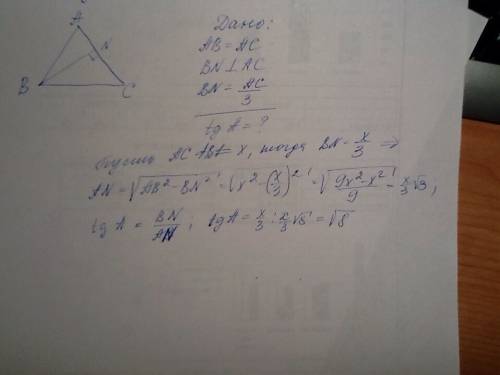 A
N
B
C
Дано:
AB = AC
BN ⊥ AC
BN = AC/3
tg A = ?
Пусть AC = AB = x, тогда BN = x/3 ⇒
AN = √(AB² − BN²) = √(x² − (x/3)²) = √((9x² − x²)/9) = x/3 √8,
tg A = BN/AN, tg A = x/3 : x/3 √8 = √8